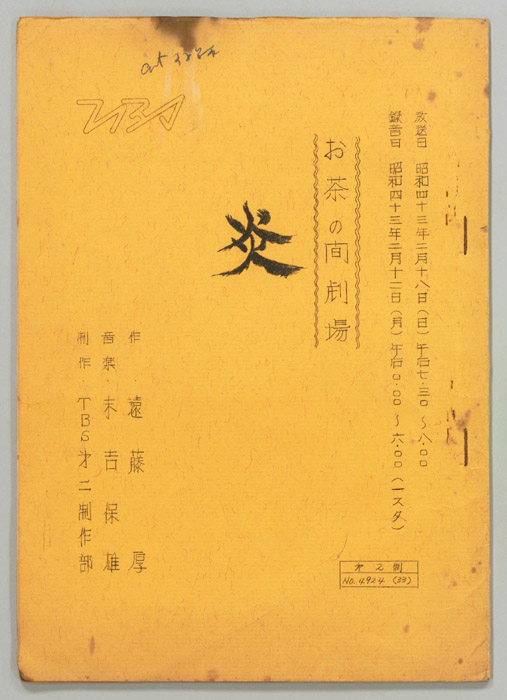 放送日 昭和四十三年二月十八日(日)午后七・三〇〜八・〇〇
録音日 昭和四十三年二月十二日(月)午后〇・〇〇〜六・〇〇(一スタ)
お茶の間劇場
炎
作・遠藤 厚
音楽・末吉保雄
制作・TBS才二制作部
TBS
才2制
NO.4924 (33)